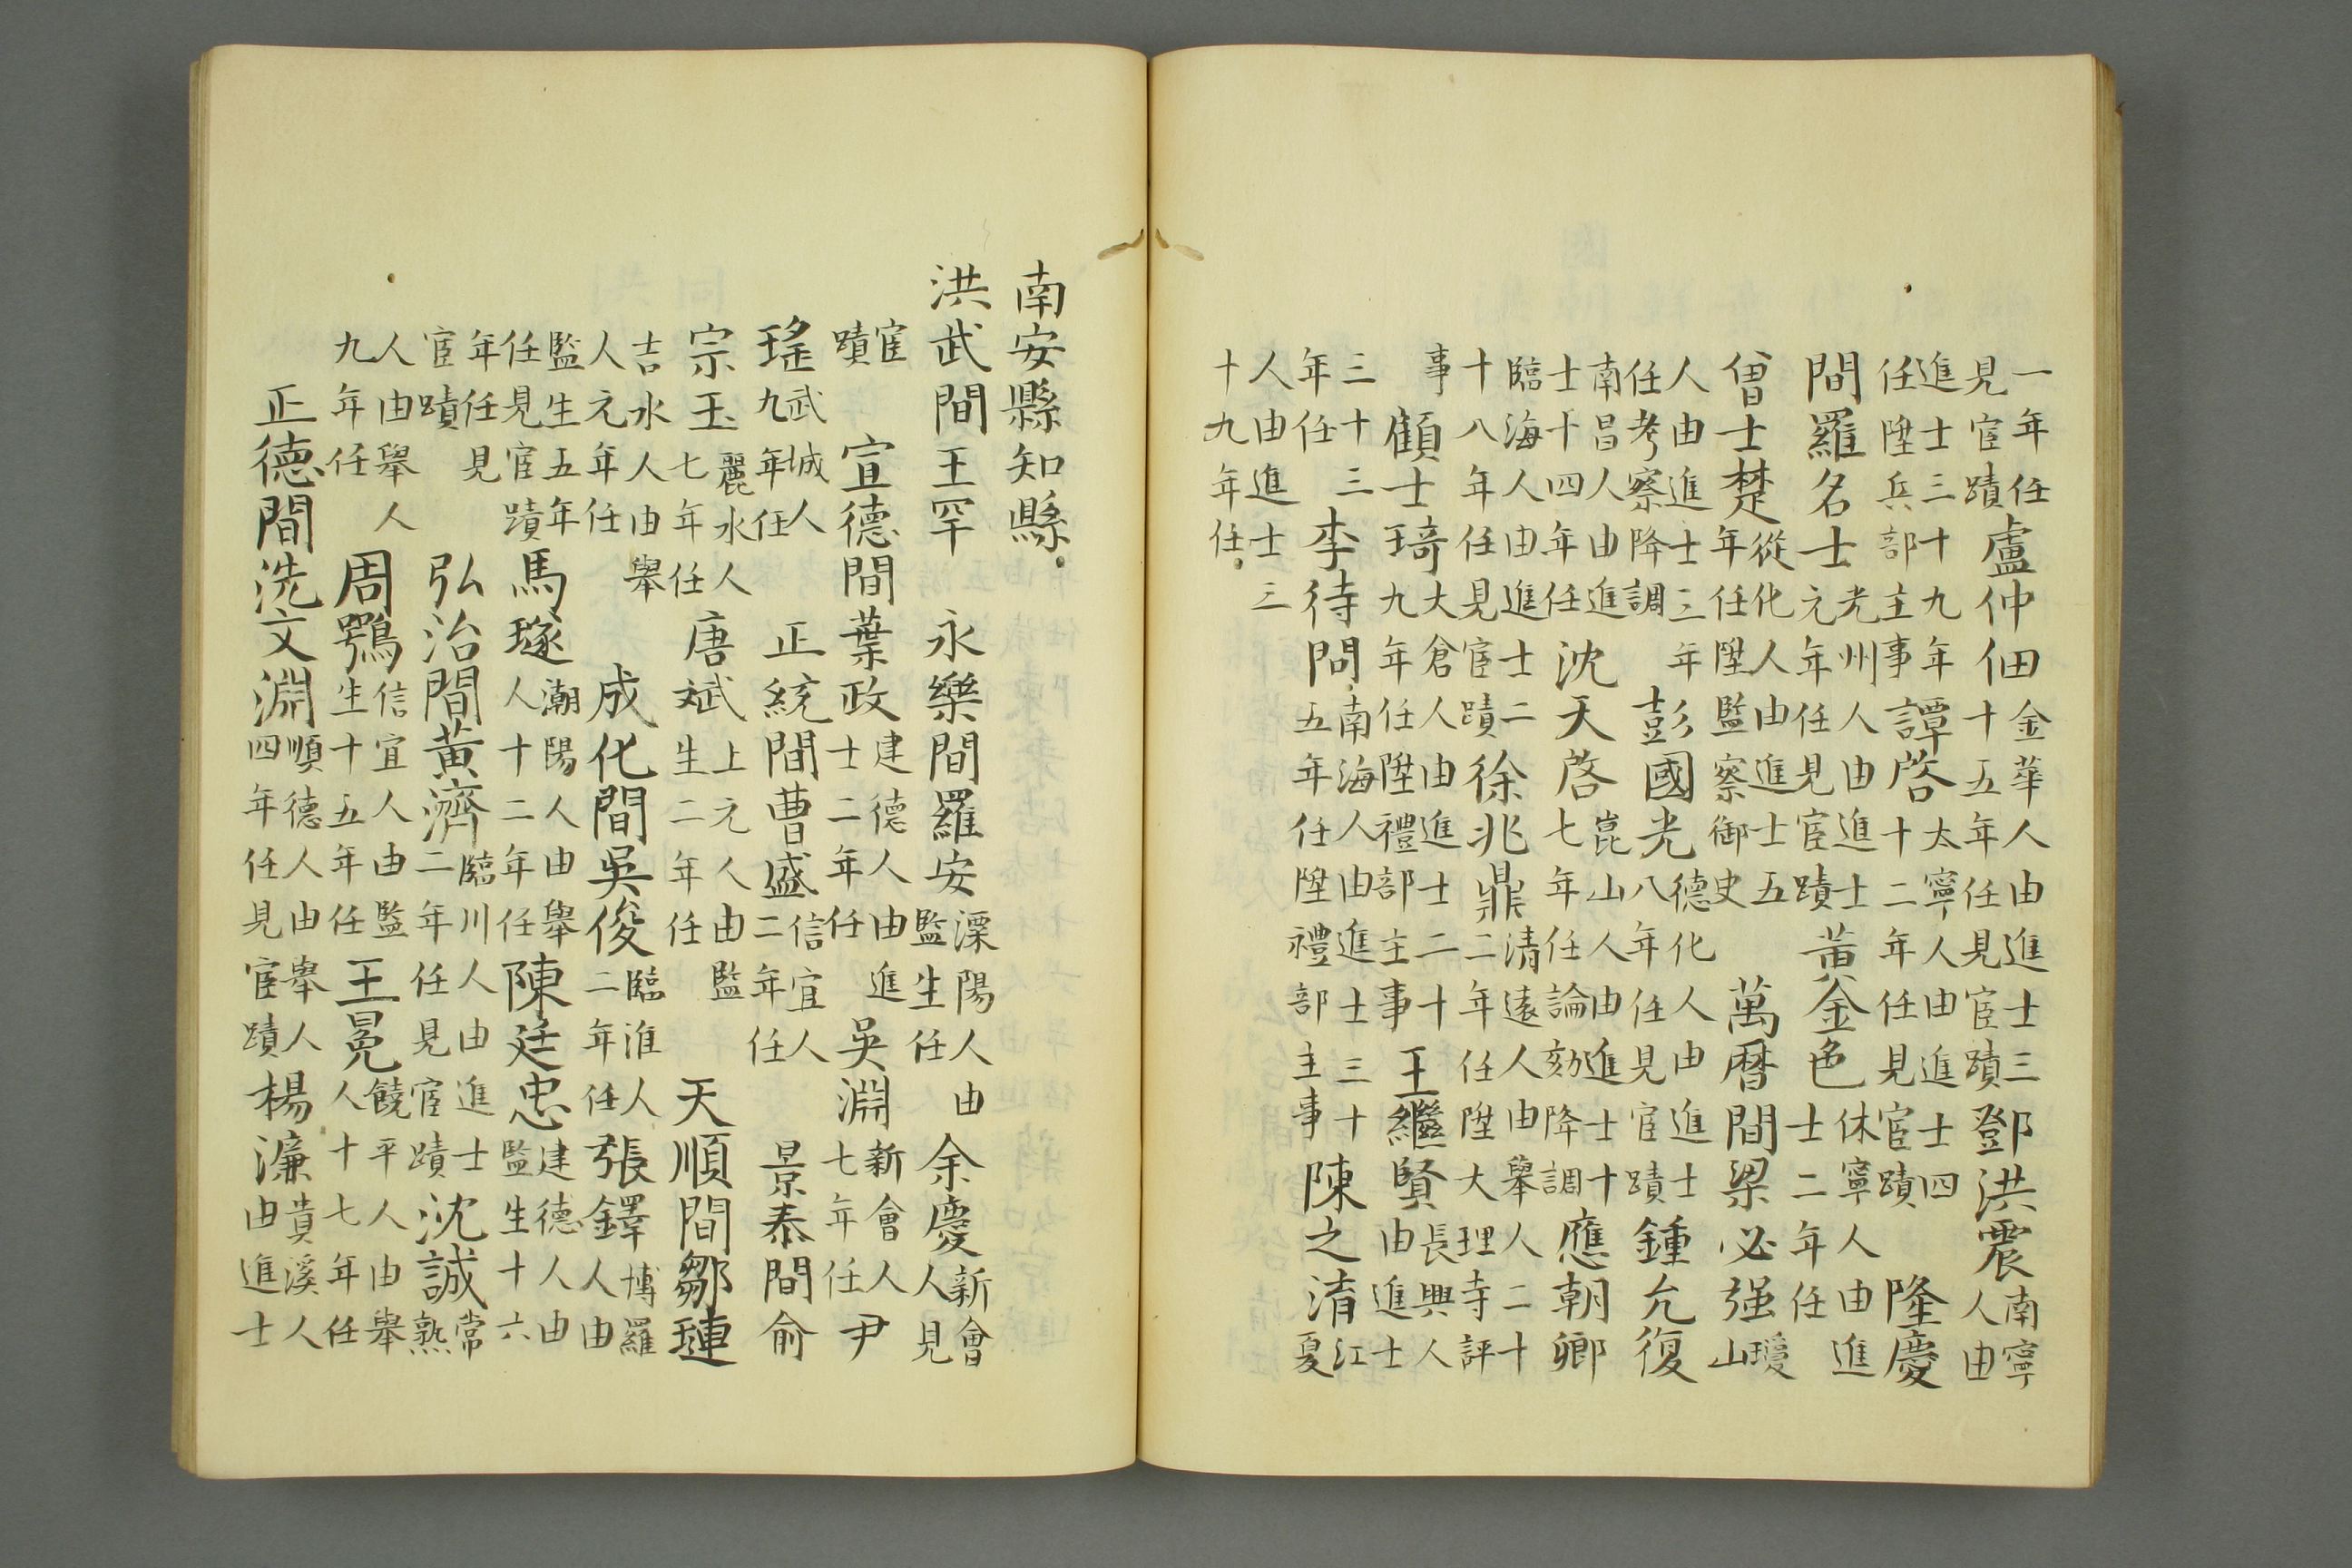 一年任見宦蹟盧仲佃金華人由進士三十五年任見宦蹟鄧洪震南寧人由
進士三十九年任陞兵部主事譚啓太寧人由進士四十二年任見宦蹟隆慶
間羅名士光州人由進士元年任見宦蹟黃金色休寧人由進士二年任
曾士楚從化人由進士五年任陞監察御史萬曆間梁必强瓊山
人由進士三年任考察降調彭國光德化人由進士八年任見宦蹟鍾允復
南昌人由進士十四年任沈天啓崑山人由進士十七年任論劾降調應朝卿
臨海人由進士二十八年任見宦蹟徐兆鼎清遠人由舉人二十二年任陞大理寺評
事顧士琦大倉人由進士二十九年任陞禮部主事王繼賢長興人由進士
三十三年任李待問南海人由進士三十五年任陞禮部主事陳之清江夏
人由進士三十九年任。
南安縣知縣。
洪武間王罕 永樂間羅安溧陽人由監生任余慶新會人見
宦蹟 宣德間葉政建德人由進士二年任吳淵新會人七年任尹
瑤武城人九年任 正統間曹盛信宜人二年任 景泰間俞
宗玉麗水人七年任唐斌上元人由監生二年任 天順間鄒璉
吉水人由舉人元年任 成化間吳俊臨淮人二年任張鐸博羅人由
監生五年任見宦蹟馬璲潮陽人由舉人十二年任陳廷忠建德人由監生十六
年任見宦蹟 弘治間黃濟臨川人由進士二年任見宦蹟沈誠常熟
人由舉人九年任周鶚信宜人由監生十五年任王冕饒平人由舉人十七年任
正德間洗文淵順德人由舉人四年任見宦蹟楊濂貴溪人由進士